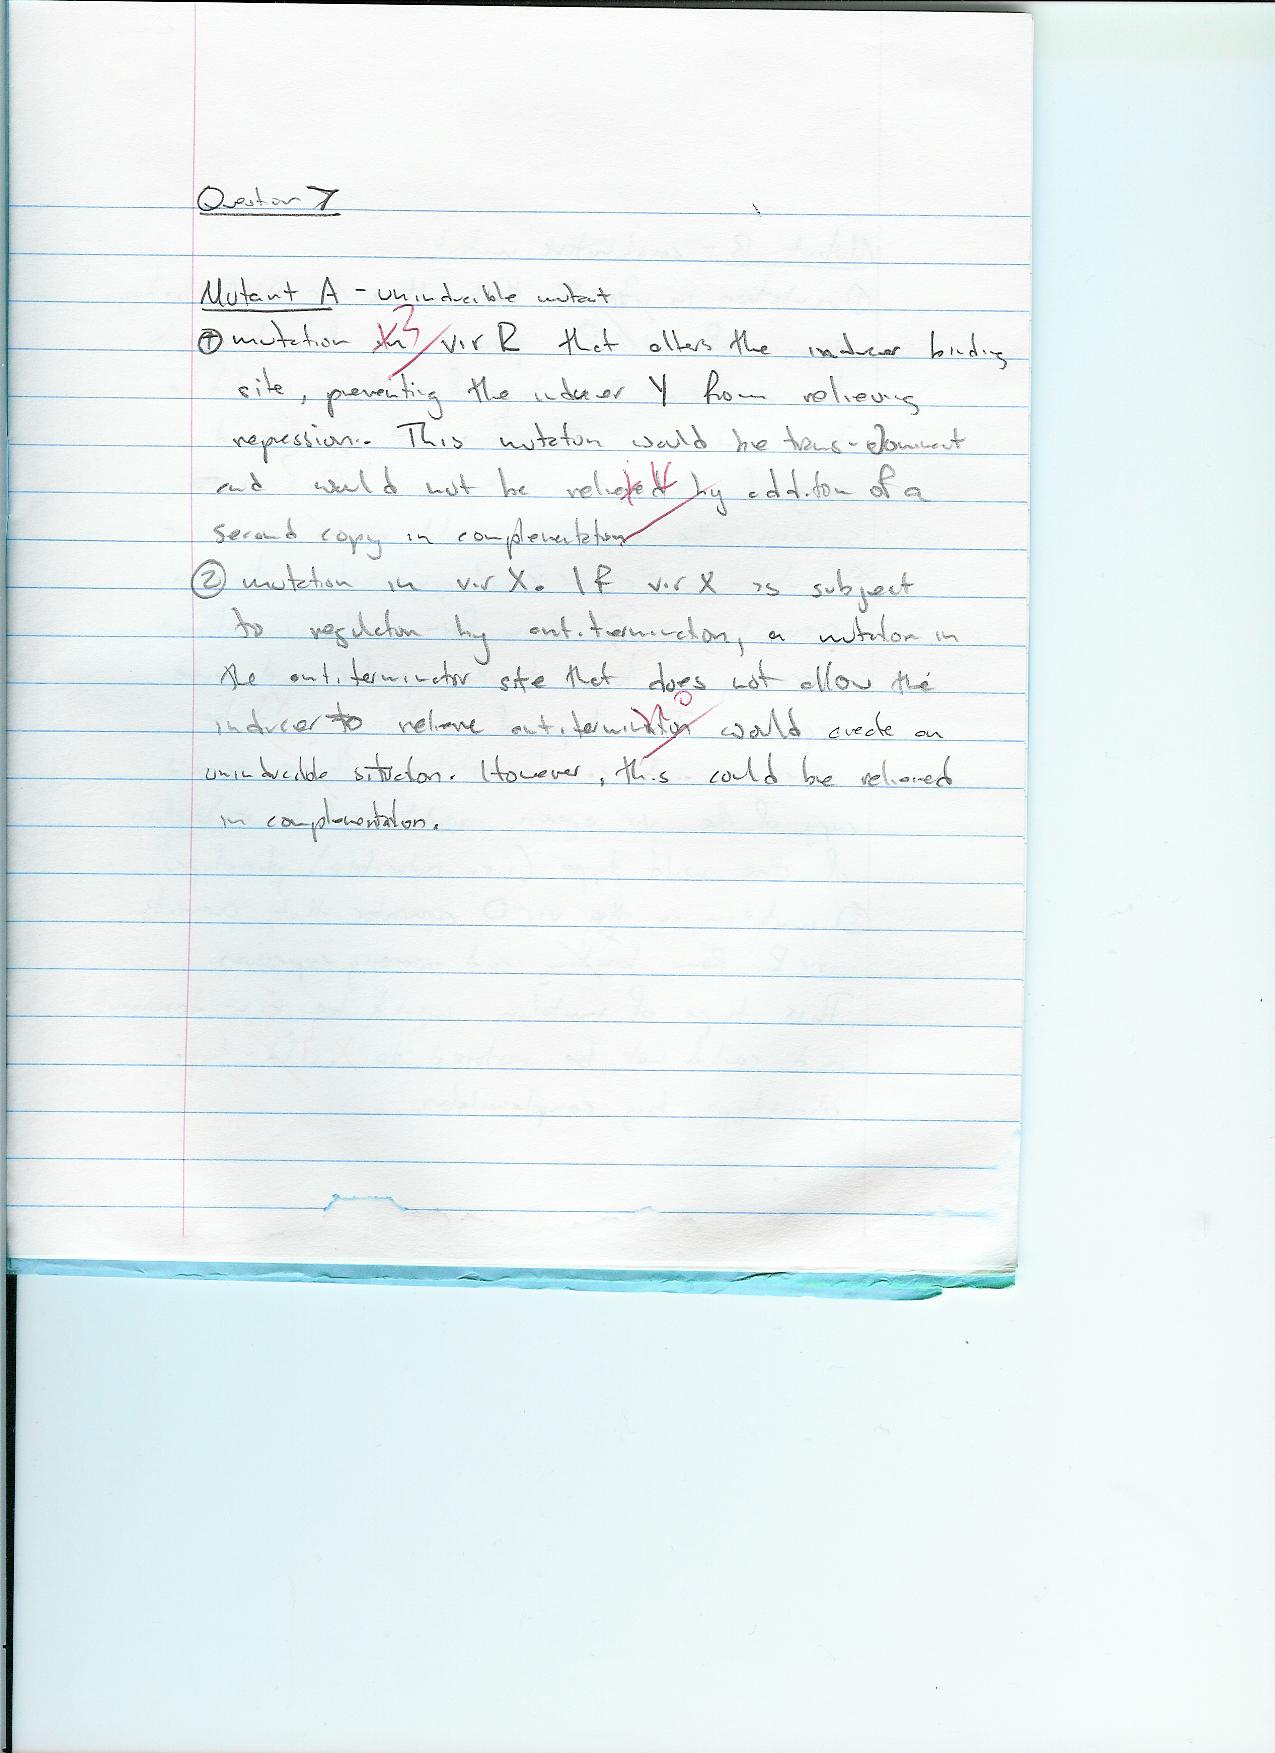 Question 7
Mutant A - uninducible mutant
① mutation in vir R that alters the inducer binding
site, preventing the inducer Y from relieving
repression. This mutation would be trans-dominant
and would not be relieved by addition of a
second copy in complementation
② mutation in vir X. If vir X is subject
to regulation by antitermination, a mutation in
the antiterminator site that does not allow the
inducer to relieve antitermination would create an
uninducible situation. However, this could be relieved
in complementation.